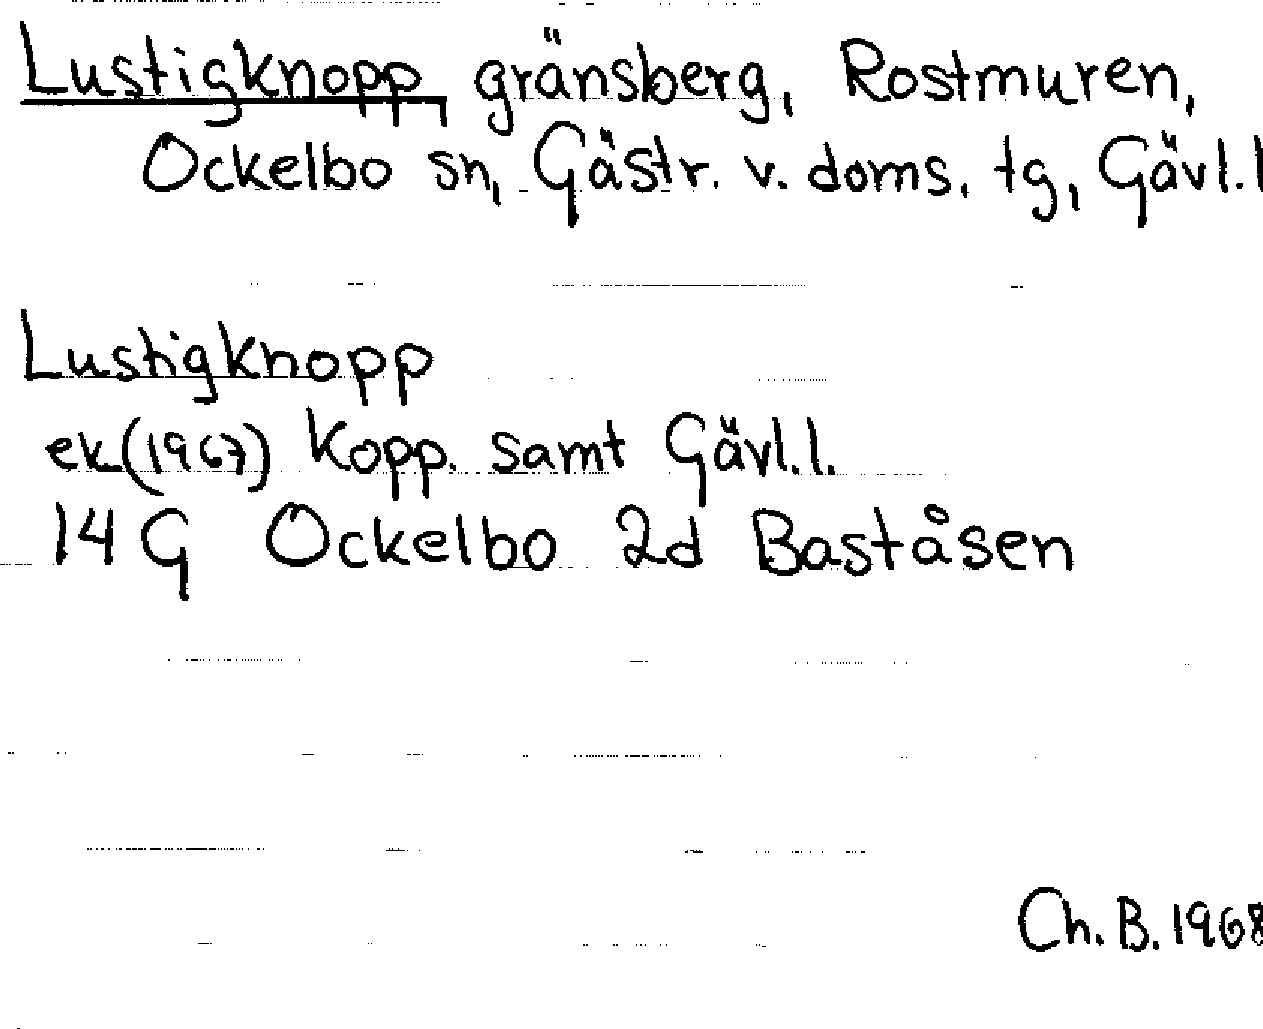 Lustigknopp, gränsberg, Rostmuren,
Ockelbo sn, Gästr. v. doms. tg, Gävl.l
Lustigknopp
ek(1967) Kopp. samt Gävl.l.
14 G Ockelbo 2d Baståsen
Ch. B. 1968